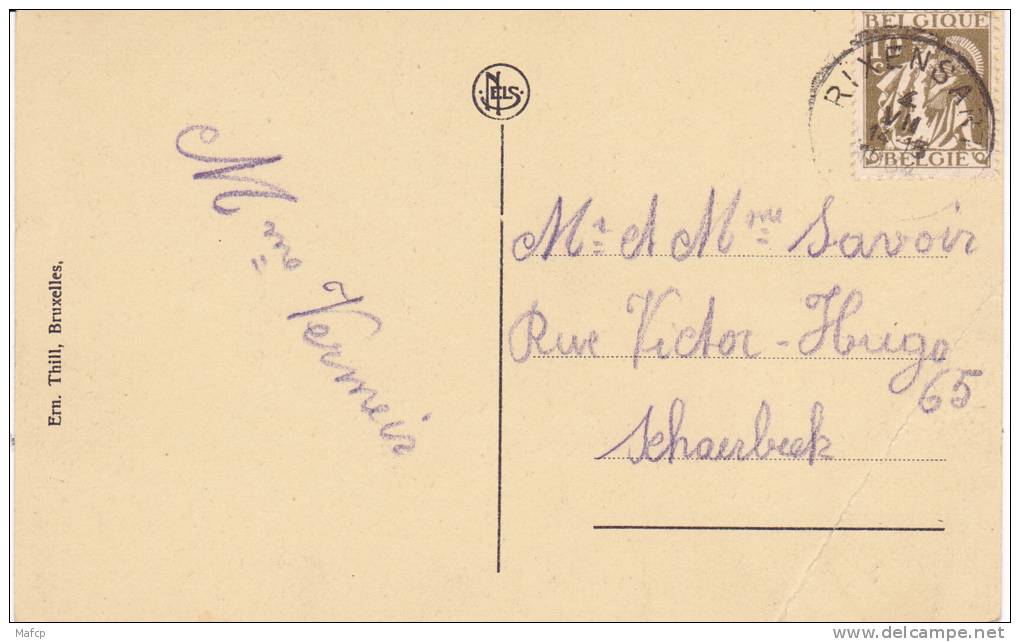 BELGIQUE
10
RIXENSART
4
VIII
BELGIE
NELS
Mme Vermeir
Mr et Mme Savoir
Rue Victor-Hugo
65
Schaerbeek
Ern. Thill, Bruxelles,
Mafcp
www.delcampe.net